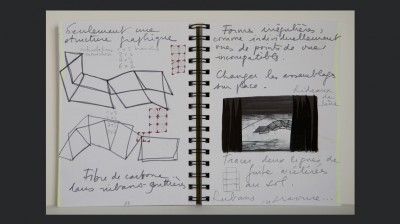 Seulement une
structure graphique
Fibre de carbone
dans rubans gouttières
Formes irrégulières,
comme individuellement
vues de points de vue
incompatibles.
Changer les assemblages
sur place.
Rideaux
de scène
Tracer deux lignes de
fuite
au sol.
Rubans